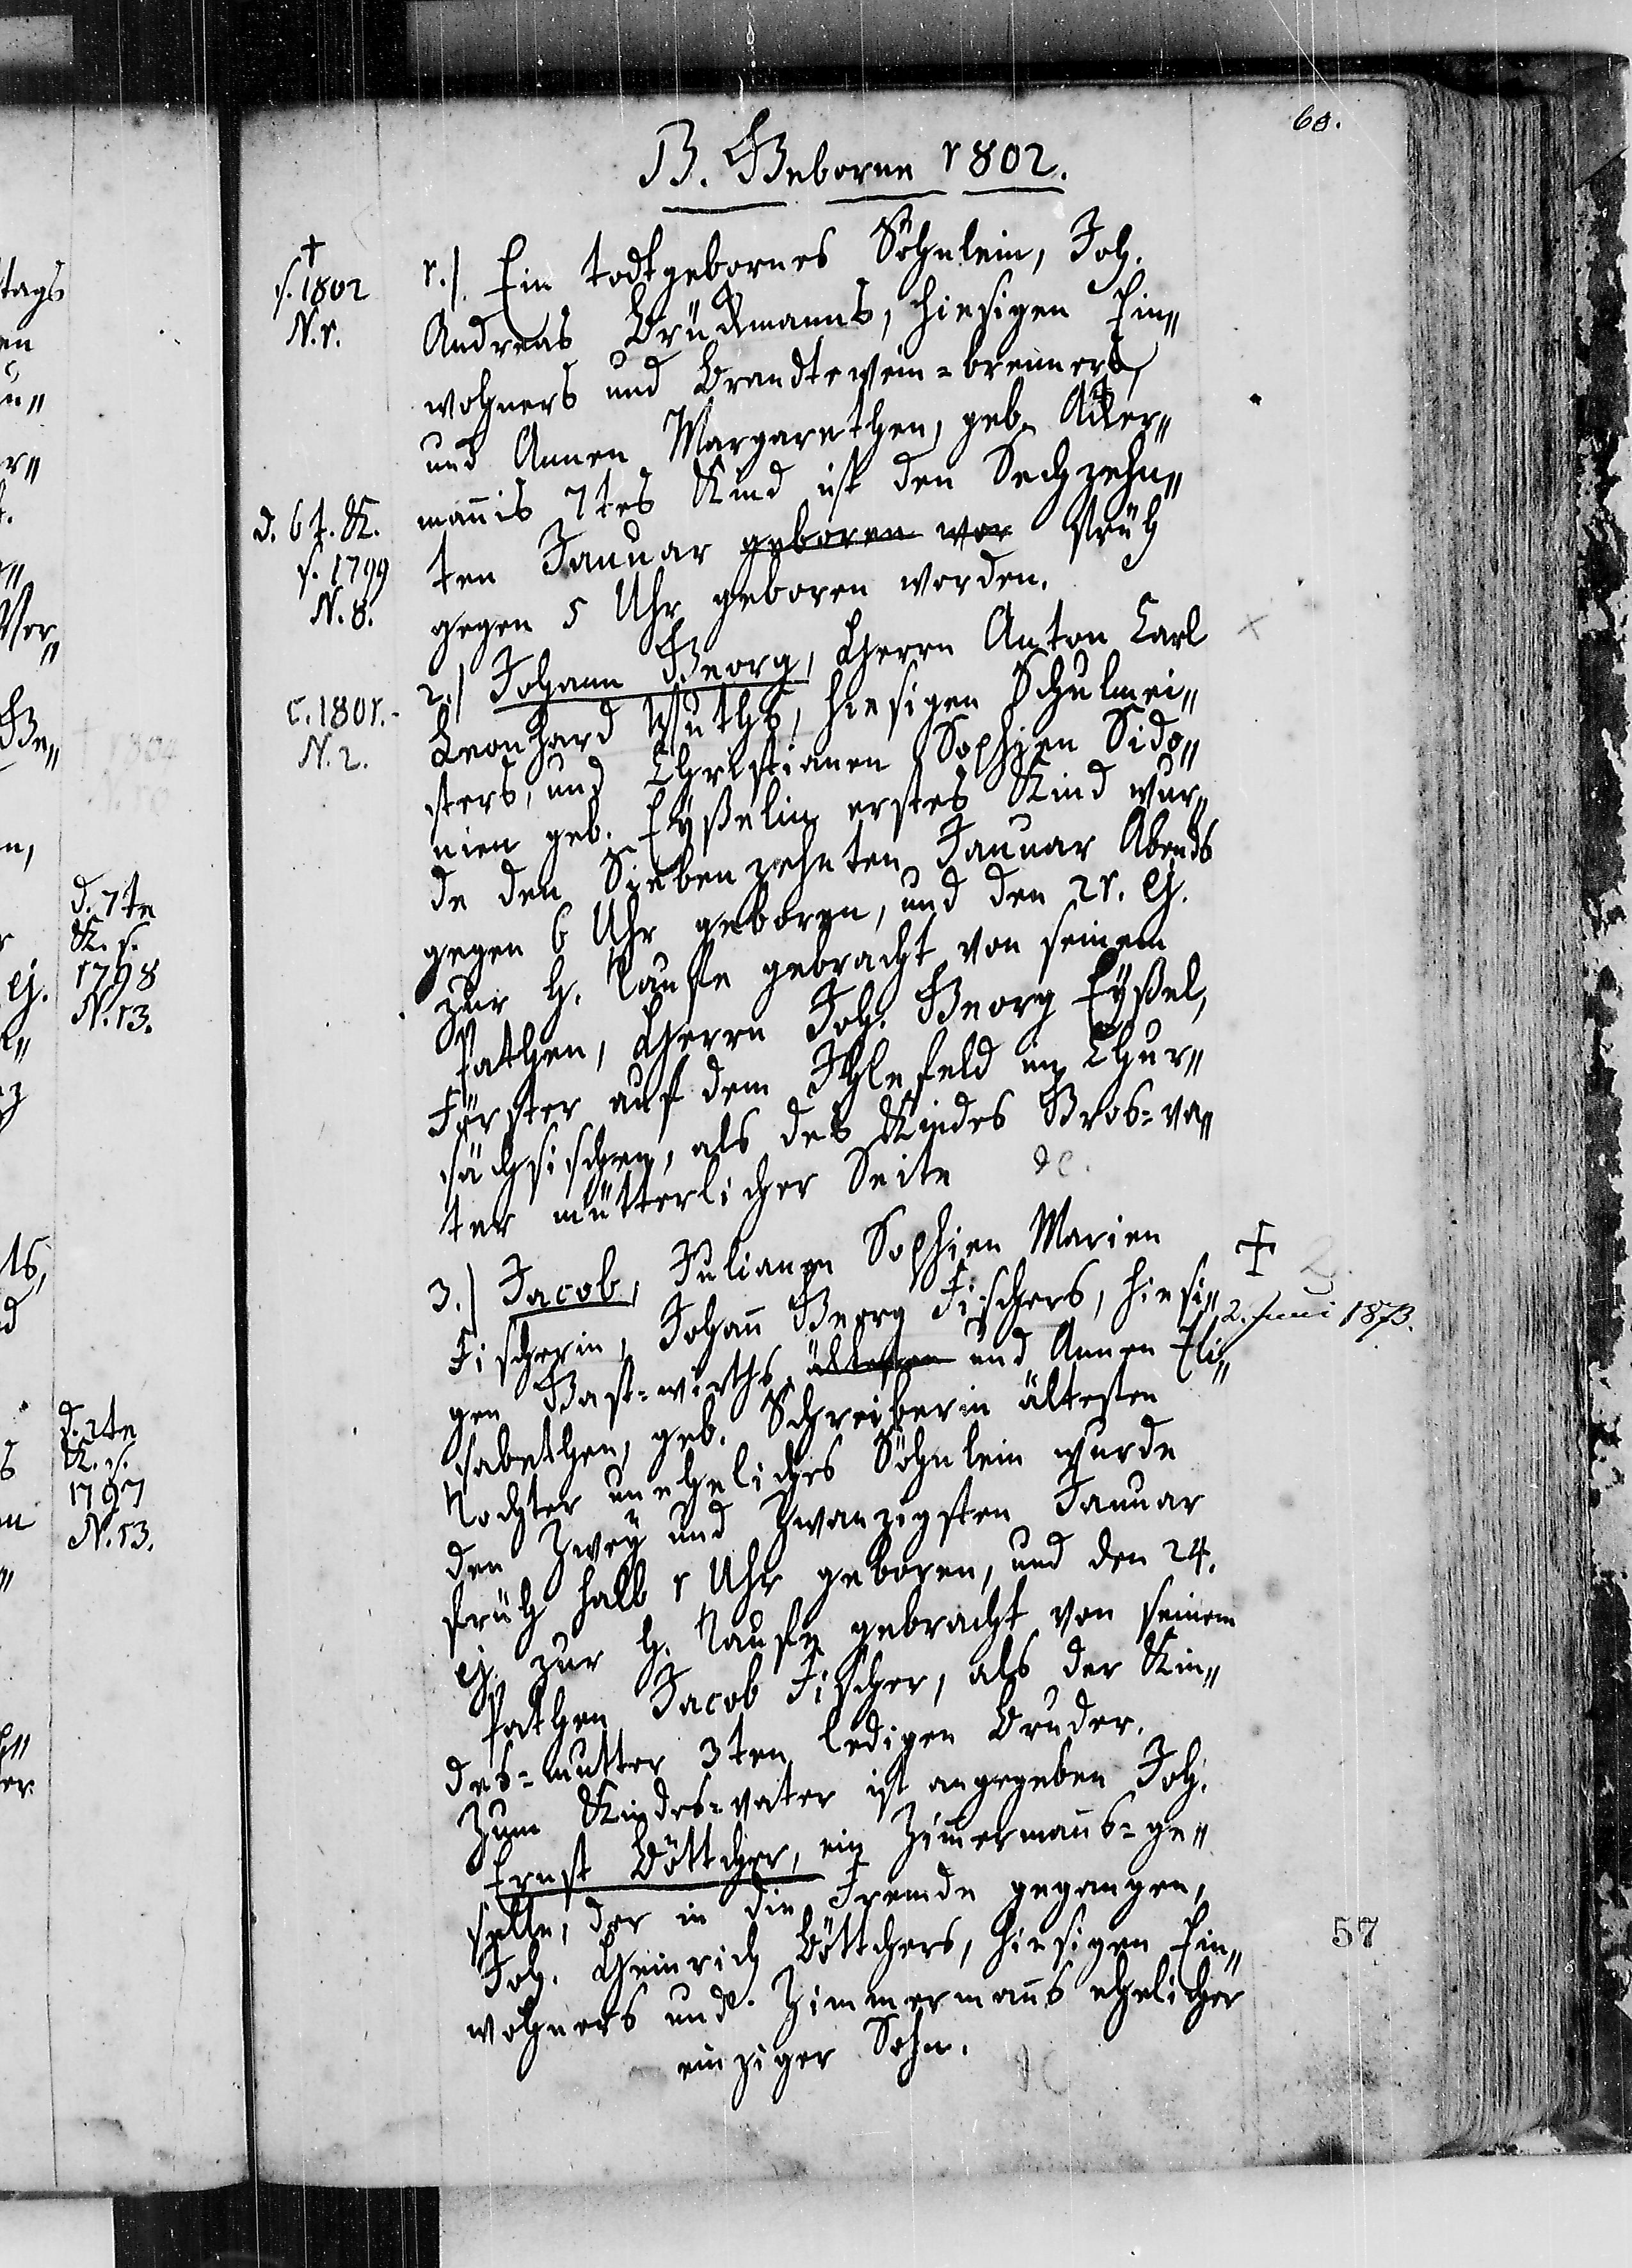 60.
B. Geborne 1802.
†
s. 1802
N. 1.
1.) Ein todtgebornes Söhnlein, Joh.
Andreas Brückmanns, hiesigen Ein„
wohners und Brandtewein=brenners,
und Annen Margarethen, geb. Acker„
mañis 7tes Kind ist den Sechzehn„
ten Januar geboren wor früh
gegen 5 Uhr geboren worden.
d. 6t. K.
s. 1799
N. 8.
2.) Johann Georg, Herrn Anton Carl
Leonhard Wuths, hiesigen Schulmei„
sters, und Christianen Sophien Sido„
nien geb. Eyßelin erstes Kind wur„
de den Siebenzehnten Januar Abends
gegen 6 Uhr geboren, und den 21. ej.
zur H. Taufe gebracht von seinem
Pathen, Herrn Joh. Georg Eyßel,
Förster auf dem Ihlefeld im Chur„
sächsischen, als des Kindes Gros=va„
ter mütterlicher Seite
c. 1801.
N. 2.
x
3.) Jacob, Julianen Sophien Marien
Fischerin, Johañ Georg Fischers, hiesi„
gen Gast=wirths ältesten und Annen Eli„
sabethen, geb. Schreiberin ältesten
Tochter unehelichs Söhnlein wurde
den Zwey und Zwanzigsten Januar
früh halb 1 Uhr geboren, und den 24.
ej. zur H. Taufe gebracht von seinem
Pathen Jacob Fischer, als der Kin„
des=mutter 3ten ledigen Bruder.
Zum Kindes=vater ist angegeben Joh.
Ernst Böttcher, ein Zimermañs=ge„
selle, der in die Fremde gegangen,
Joh. Heinrich Böttchers, hiesigen Ein„
wohners und Zimmermañs ehelicher
einziger Sohn.
†
2. Juni 1873.
57
tags
ej.
d. 7te
K. s.
1798
N. 13.
d. 2te
K. s.
1797
N. 13.